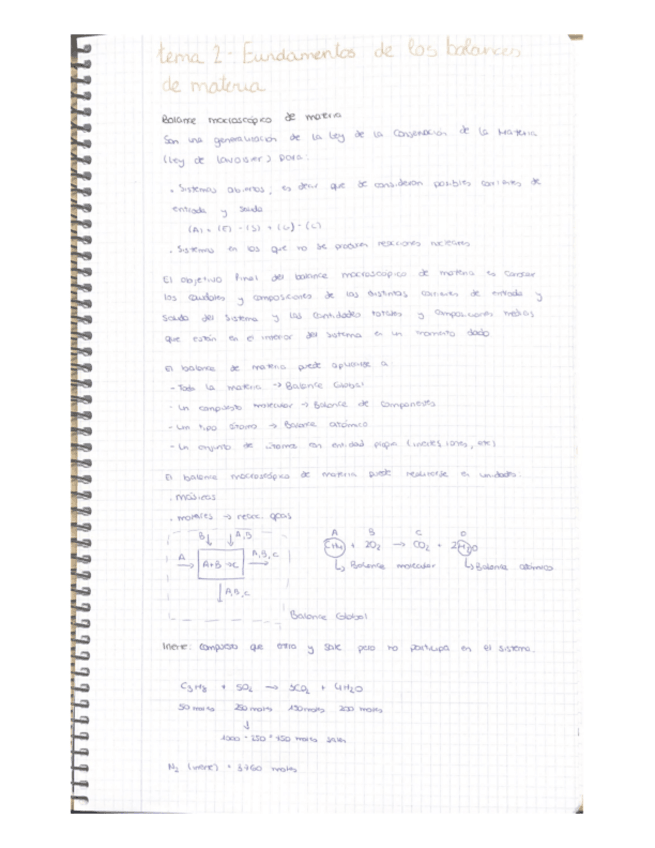 tema 2 - Fundamentos de los balances
de materia
Balance macroscópico de materia
Son una generalización de la Ley de la Conservación de la Materia
(Ley de Lavoisier) para:
. Sistemas abiertos, es decir que se consideran posibles corrientes de
entrada y salida
(A) = (E) - (S) + (G) - (C)
. Sistemas en los que no se producen reacciones nucleares
El objetivo final del balance macroscópico de materia es conocer
los caudales y composiciones de las distintas corrientes de entrada y
salida del sistema y las cantidades totales y composiciones medias
que están en el interior del sistema en un momento dado
El balance de materia puede aplicarse a
- Toda la materia → Balance Global
- Un compuesto molecular → Balance de componentes
- Un tipo átomo → Balance atómico
- Un conjunto de átomos con entidad propia (inertes, iones, etc)
El balance macroscópico de materia puede realizarse en unidades:
. másicas
. molares → reacc. qcas
B A,B
A A+B → C A,B,C
A,B,C
A B C D
CH4 + 2O2 → CO2 + 2H2O
Balance molecular Balance atómico
Balance Global
Inerte: compuesto que entra y sale pero no participa en el sistema.
C3H8 + 5O2 → 3CO2 + 4H2O
50 moles 250 moles 150 moles 200 moles
1000 - 250 = 750 moles salen
N2 (inerte) = 3760 moles